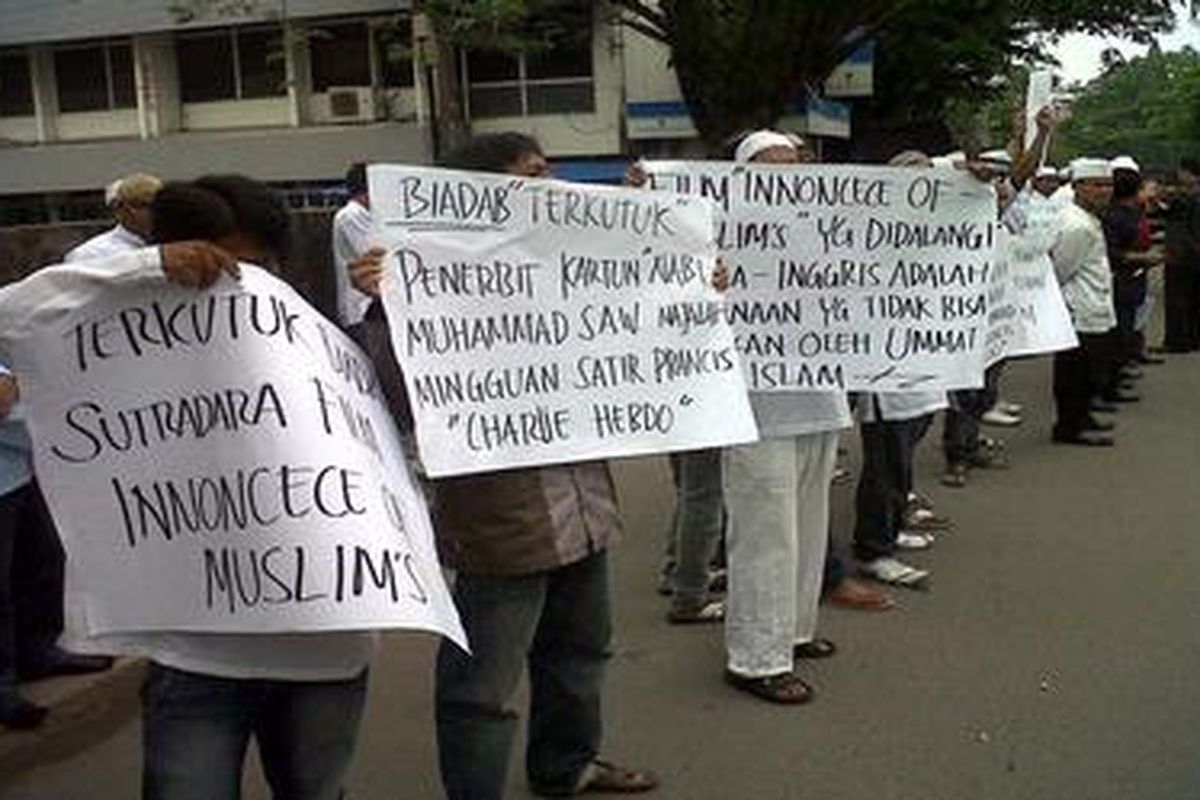 TERKUTUK
SUTRADARA FILM
INNONCECE OF
MUSLIM'S
BIADAB "TERKUTUK"
PENERBIT KARTUN "NABI
MUHAMMAD SAW MAJALAH
MINGGUAN SATIR PRANCIS
"CHARLIE HEBDO"
FILM "INNONCECE OF
LIM'S" YG DIDALANGI
A - INGGRIS ADALAH
NAAN YG TIDAK BISA
KAN OLEH UMMAT
ISLAM